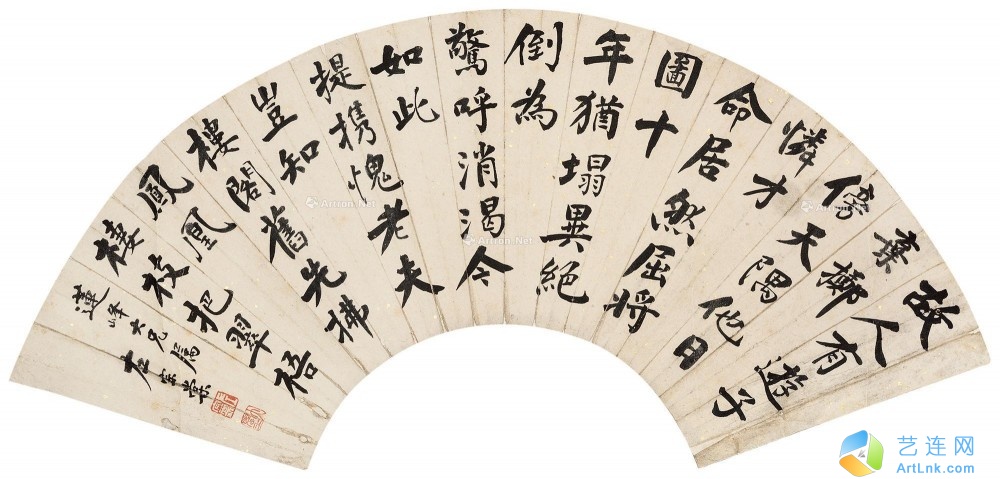 故人有遊子
棄擲
傍天隅他日
憐才
命居然屈將
圖十
年猶塌異絕
倒為
驚呼消渴今
如此
提携愧老夫
豈知
樓閣舊先拂
鳳凰
棲枝把翠梧
蓮峰大兄屬
左宗棠
Artron.Net
艺连网
ArtLnk.com